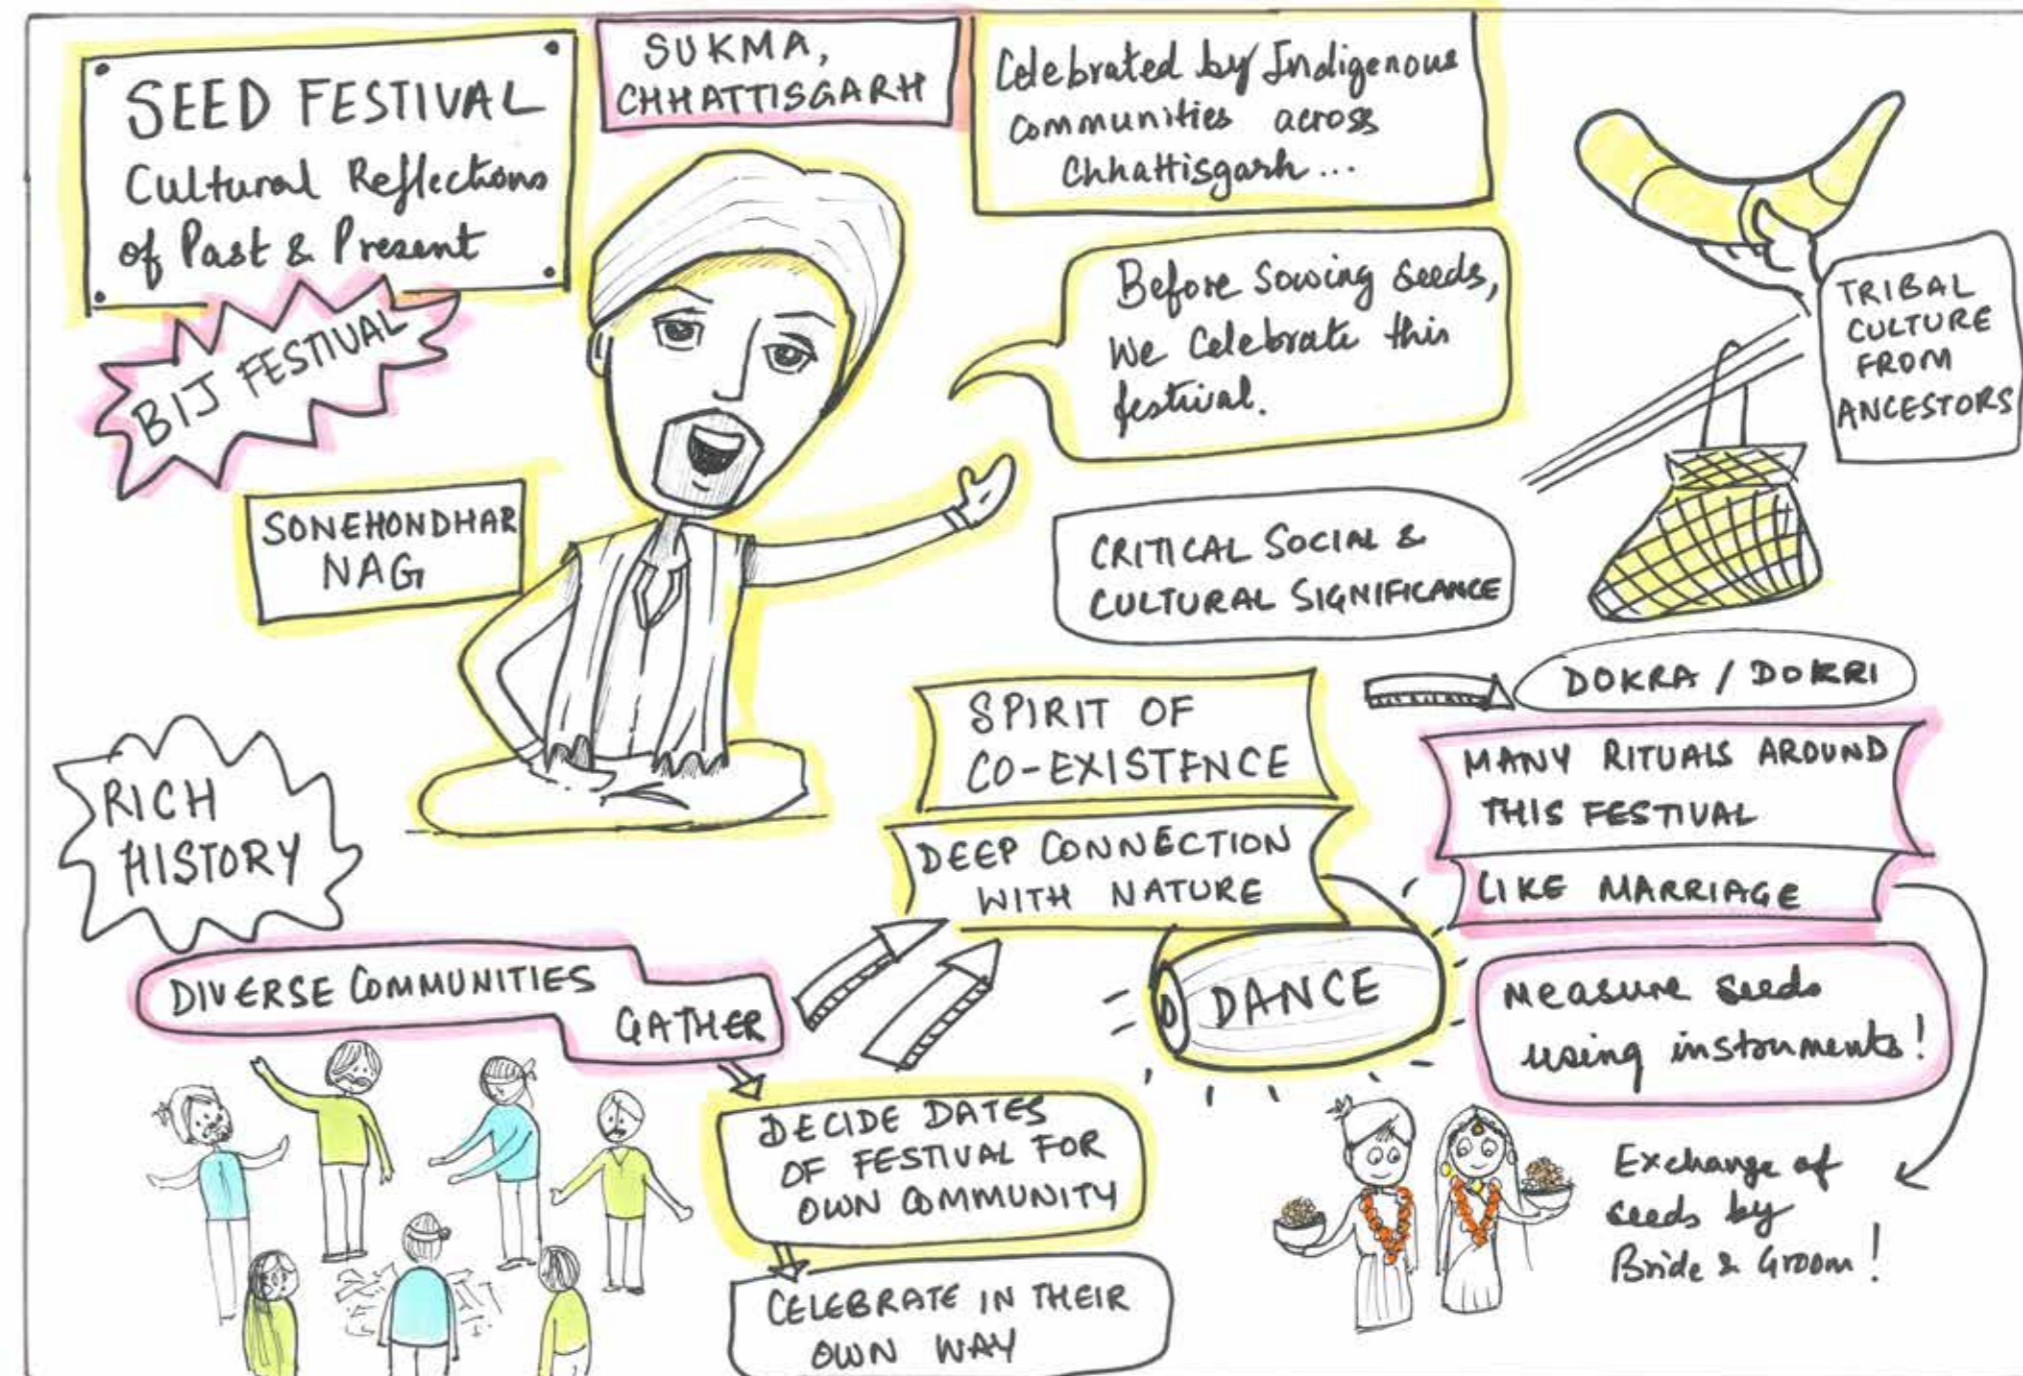 SEED FESTIVAL
Cultural Reflections
of Past & Present
BIJ FESTIVAL
SUKMA,
CHHATTISGARH
Celebrated by Indigenous
Communities across
Chhattisgarh...
Before Sowing Seeds,
We Celebrate this
festival.
TRIBAL
CULTURE
FROM
ANCESTORS
SONEHONDHAR
NAG
CRITICAL SOCIAL &
CULTURAL SIGNIFICANCE
DOKRA / DOKRI
SPIRIT OF
CO-EXISTENCE
DEEP CONNECTION
WITH NATURE
MANY RITUALS AROUND
THIS FESTIVAL
LIKE MARRIAGE
RICH
HISTORY
DIVERSE COMMUNITIES
GATHER
DANCE
Measure seeds
using instruments!
DECIDE DATES
OF FESTIVAL FOR
OWN COMMUNITY
Exchange of
seeds by
Bride & Groom!
CELEBRATE IN THEIR
OWN WAY